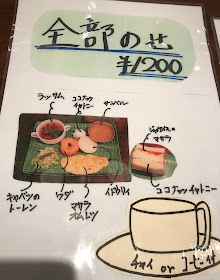 全部のせ
¥1200
ラッサム
ココナッツ
チャトニー
サンバル
ジャガイモの
マサラ
キャベツの
トーレン
ワダ
マサラ
オムレツ
イドゥリィ
ココナッツチャトニー
チャイ or コーヒー